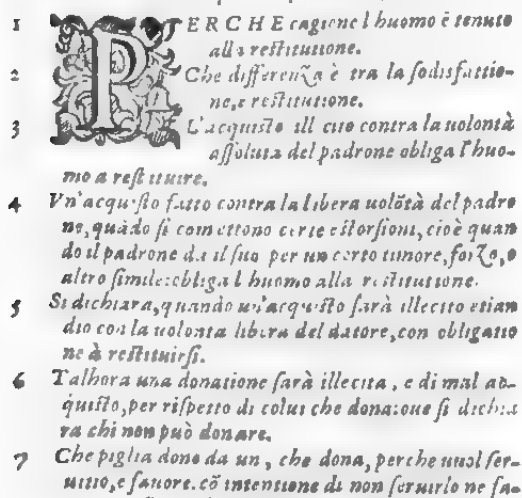 1 PERCHE cagione l huomo è tenuto
alla reſtitutione.
2 Che differenza è tra la ſodisfattio-
ne, e reſtitutione.
3 L'acquiſto ill cito contra la uolontà
aſſoluta del padrone obliga l'huo-
mo a reſtituire.
4 Vn'acquiſto fatto contra la libera uolõtà del padro
ne, quãdo ſi comettono certe eſtorſioni, cioè quan
do il padrone da il ſuo per un certo timore, forzo, o
altro ſimile: obliga l huomo alla reſtitutione.
5 Si dichiara, quando un'acquiſto ſarà illecito etian
dio con la uolonta libera del datore, con obligatio
ne à reſtituirſi.
6 Talhora una donatione ſarà illecita, e di mal ac-
quiſto, per riſpetto di colui che dona: oue ſi dichia
ra chi non può donare.
7 Che piglia dono da un, che dona, perche uuol ſer-
uitio, e fauore. cõ intentione di non ſeruirlo ne fa-